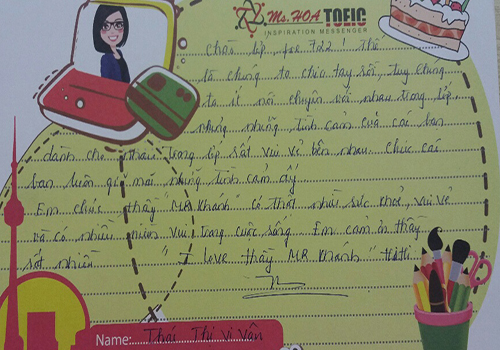 Ms.HOA TOEIC
INSPIRATION MESSENGER
Chào lớp pre 722! Thế
là chúng ta chia tay rồi, tuy chúng
ta ít nói chuyện với nhau trong lớp
nhưng những tình cảm của các bạn
dành cho nhau trong lớp rất vui vẻ bên nhau. Chúc các
bạn luôn giữ mãi những tình cảm ấy
Em chúc thầy "MR Khánh" có thật nhiều sức khoẻ, vui vẻ
và có nhiều niềm vui trong cuộc sống. Em cảm ơn thầy
rất nhiều "I love thầy MR. Khánh"
Name: Thái Thị Vi Vân